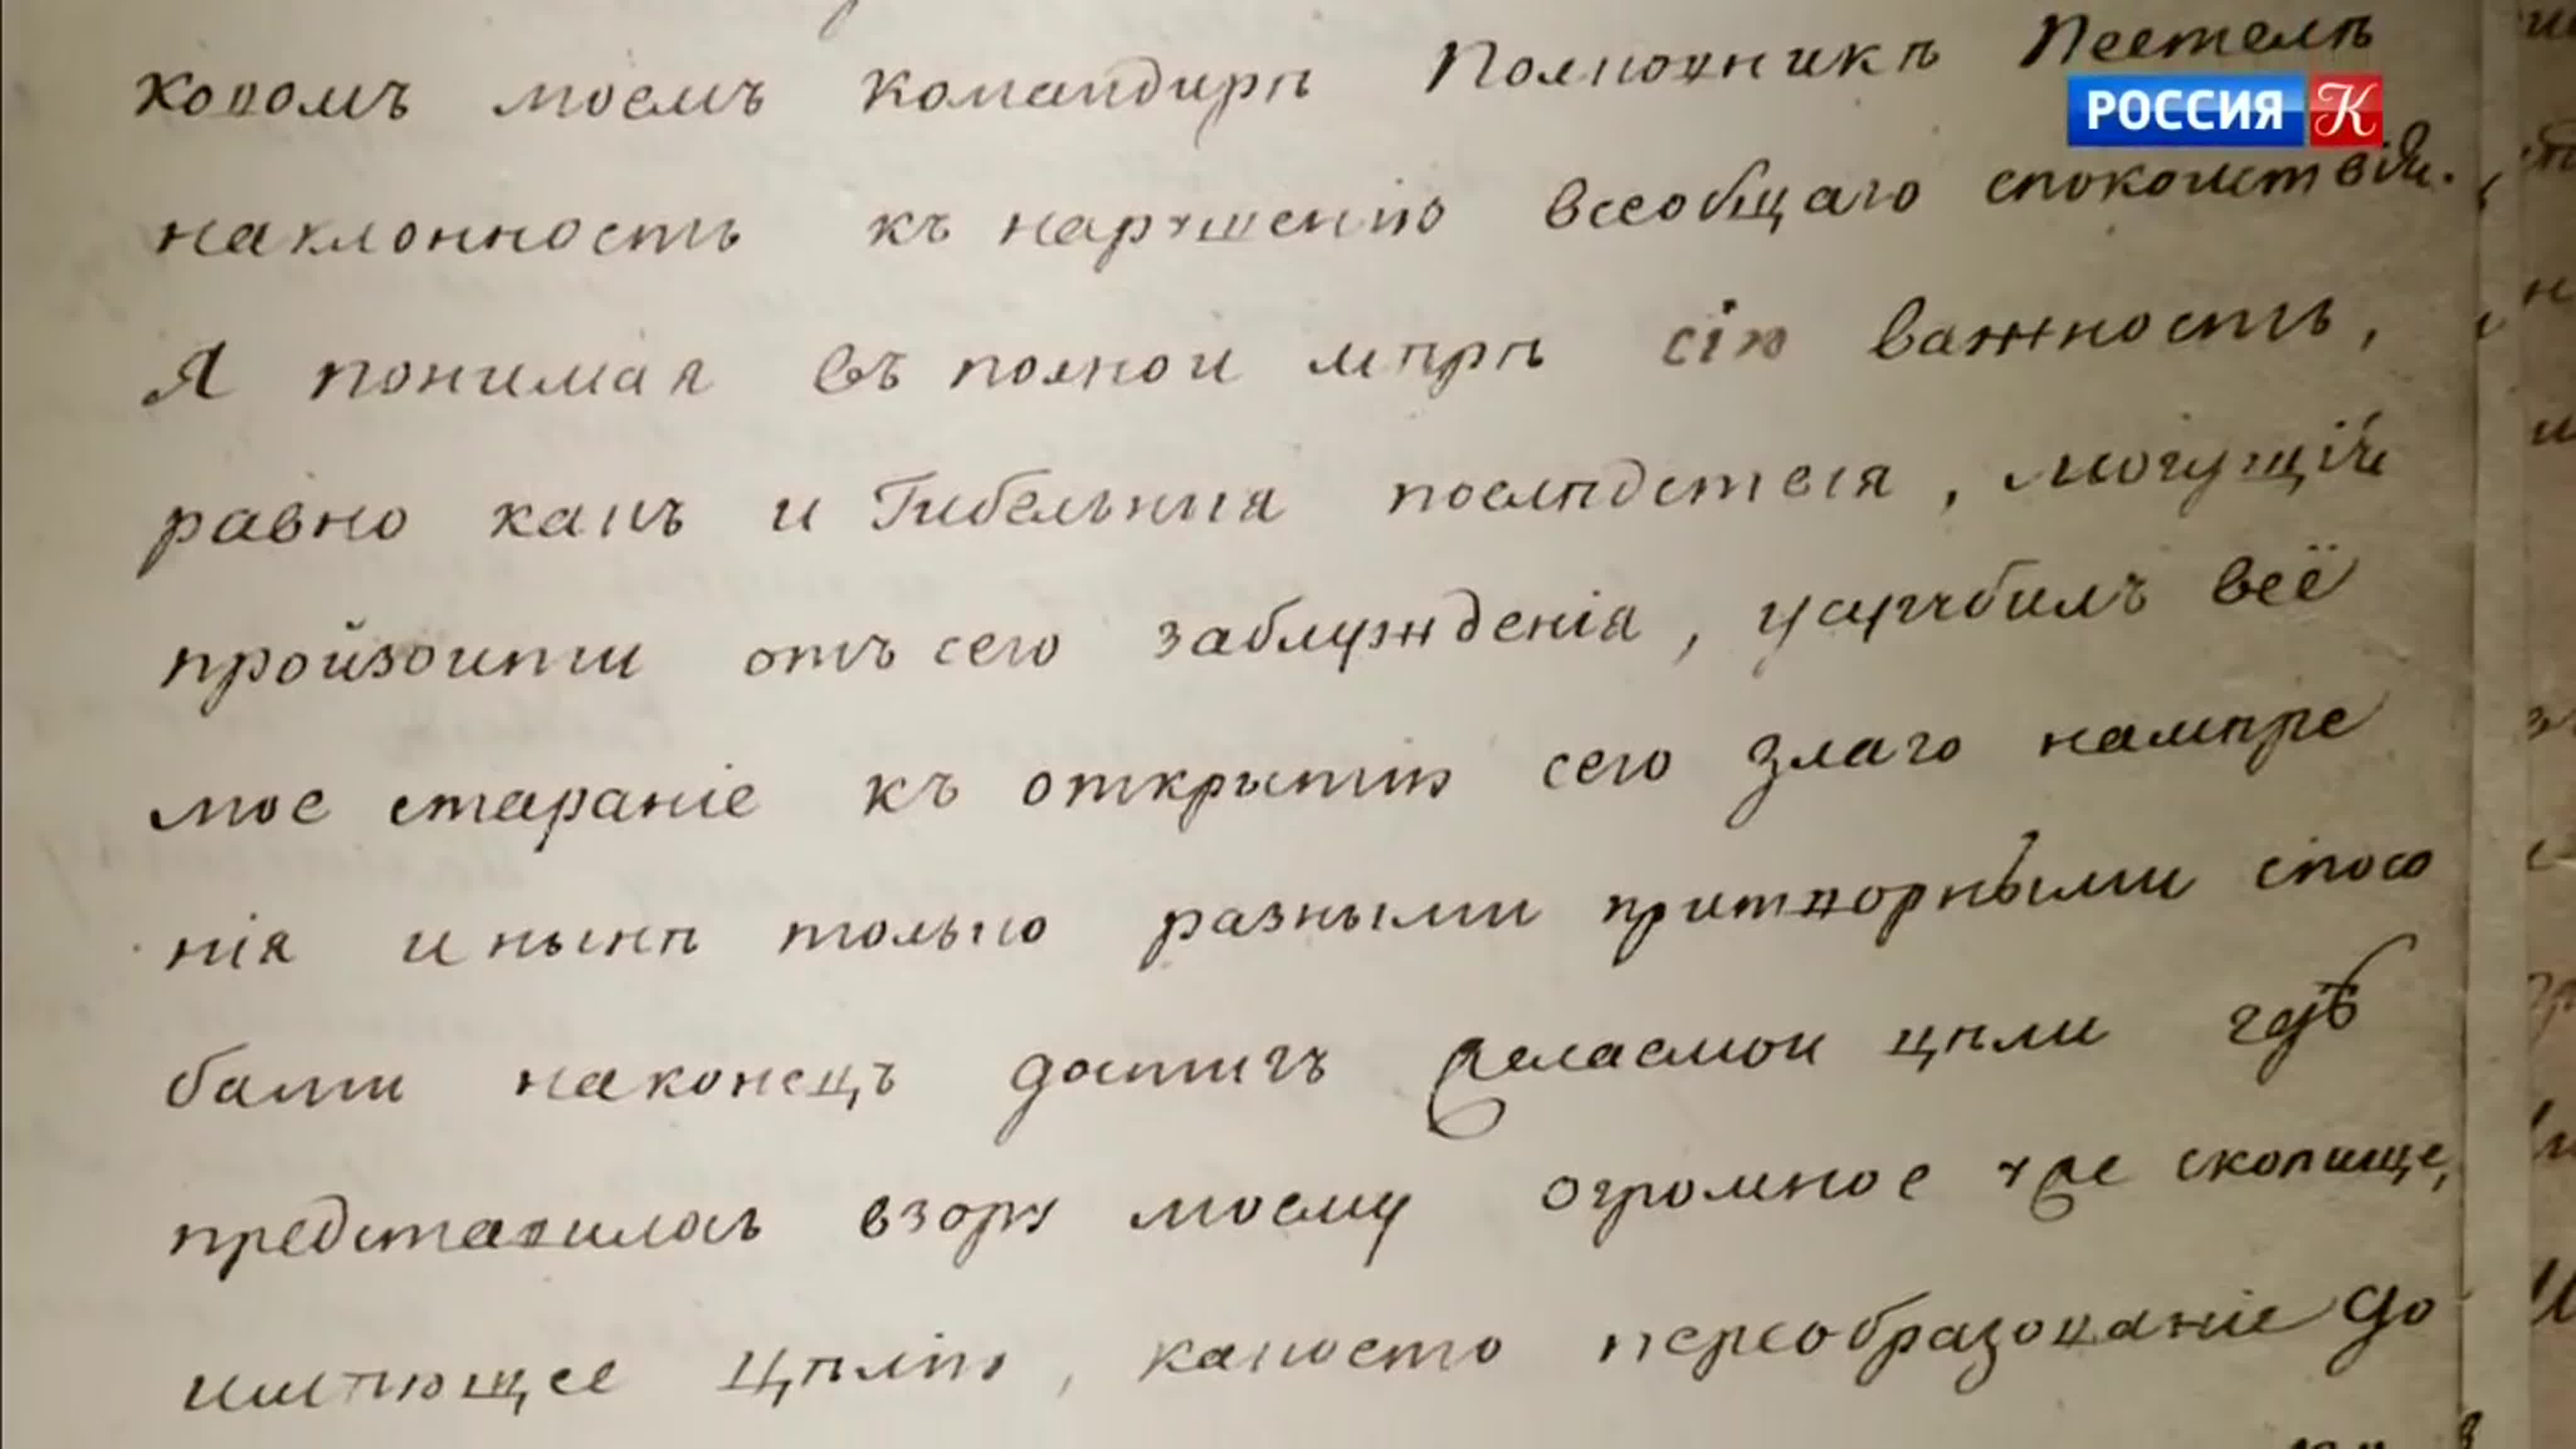 ковомъ моемъ Командирѣ Полковникѣ Пестелѣ
РОССИЯ К
наклонность къ нарушенію всеобщаго спокойствія.
Я понимая въ полной мѣрѣ сію важность,
равно какъ и Гибельныя послѣдствія, могущія
пройзойти отъ сего заблужденія, усугубилъ всё
мое стараніе къ открытію сего злаго намѣре
нія и нынѣ только разными притворными спосо
бами наконецъ достигъ желаемой цѣли гдѣ
представилось взору моему огромное уже скопище,
имѣющее цѣлію, какоето переобразованіе до